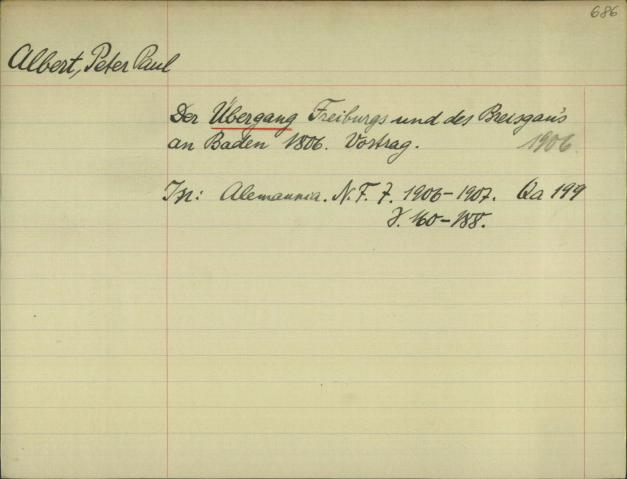 686
Albert, Peter Paul
Der Übergang Freiburgs und des Breisgaus
an Baden 1806. Vortrag. 1906
In: Alemannia. N. F. 7. 1906-1907. Qa 199
S. 160-188.